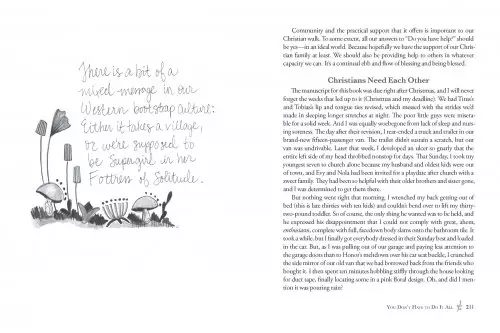 There is a bit of a
mixed-message in our
Western bootstrap culture:
Either it takes a village,
or we're supposed to
be Supergirl in her
Fortress of Solitude.
Community and the practical support that it offers is important to our
Christian walk. To some extent, all our answers to "Do you have help?" should
be yes—in an ideal world. Because hopefully we have the support of our Chris-
tian family at least. We should also be providing help to others in whatever
capacity we can. It's a continual ebb and flow of blessing and being blessed.
Christians Need Each Other
The manuscript for this book was due right after Christmas, and I will never
forget the weeks that led up to it (Christmas and my deadline). We had Titus's
and Tobias's lip and tongue ties revised, which messed with the strides we'd
made in sleeping longer stretches at night. The poor little guys were misera-
ble for a solid week. And I was equally woebegone from lack of sleep and nurs-
ing soreness. The day after their revision, I rear-ended a truck and trailer in our
brand-new fifteen-passenger van. The trailer didn't sustain a scratch, but our
van was undrivable. Later that week, I developed an ulcer so gnarly that the
entire left side of my head throbbed nonstop for days. That Sunday, I took my
youngest seven to church alone because my husband and oldest kids were out
of town, and Evy and Nola had been invited for a playdate after church with a
sweet family. They had been so helpful with their older brothers and sister gone,
and I was determined to get them there.
But nothing went right that morning. I wrenched my back getting out of
bed (this is late thirties with ten kids) and couldn't bend over to lift my thirty-
two-pound toddler. So of course, the only thing he wanted was to be held, and
he expressed his disappointment that I could not comply with great, ahem,
enthusiasm, complete with full, facedown body slams onto the bathroom tile. It
took a while, but I finally got everybody dressed in their Sunday best and loaded
in the car. But, as I was pulling out of our garage and paying less attention to
the garage doors than to Honor's meltdown over his car seat buckle, I crunched
the side mirror of our old van that we had borrowed back from the friends who
bought it. I then spent ten minutes hobbling stiffly through the house looking
for duct tape, finally locating some in a pink floral design. Oh, and did I men-
tion it was pouring rain?
You Don't Have to Do It All
211